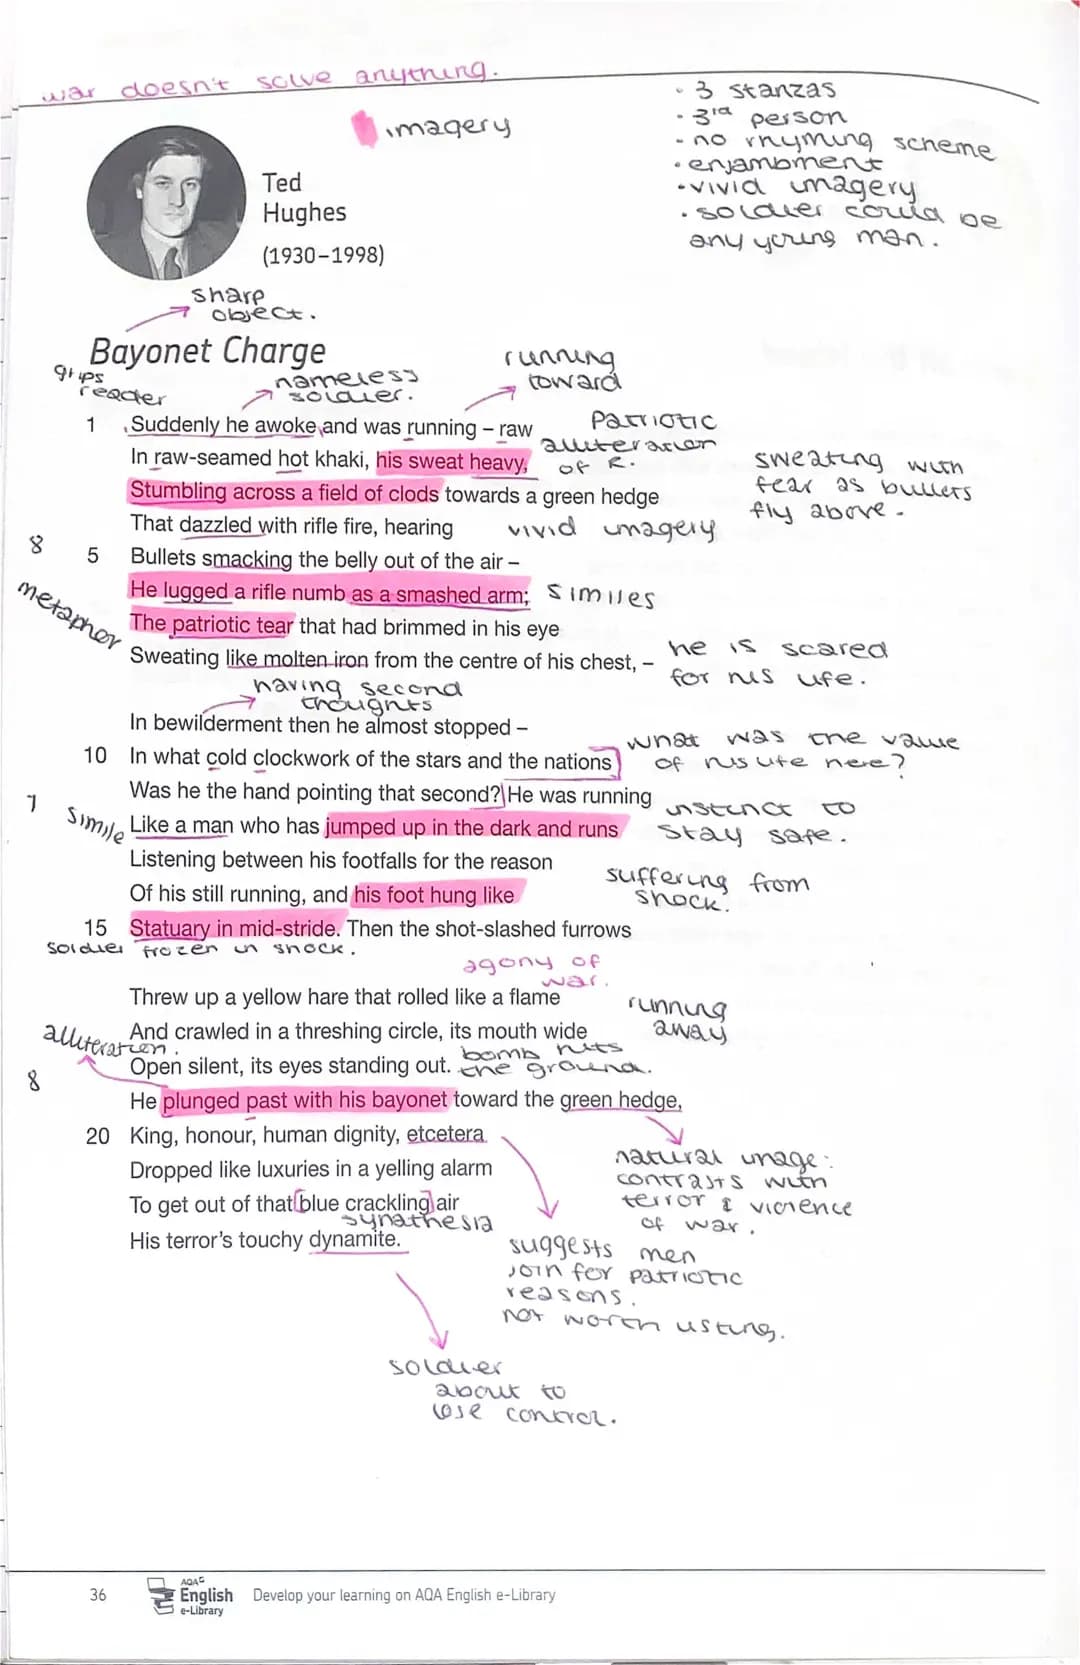 war doesn't solve anything.
imagery
· 3 stanzas
· 3rd person
- no rhyming scheme
· enjambment
· vivid imagery
· soldier could be
any young man.
Ted
Hughes
(1930–1998)
sharp
object.
Bayonet Charge
grips
reader
nameless
soldier.
running
toward
1 Suddenly he awoke and was running – raw
Patriotic
alliteration
of R.
In raw-seamed hot khaki, his sweat heavy,
sweating with
fear as bullets
fly above.
Stumbling across a field of clods towards a green hedge
That dazzled with rifle fire, hearing
vivid imagery
8
5 Bullets smacking the belly out of the air –
He lugged a rifle numb as a smashed arm;
similes
metaphor
The patriotic tear that had brimmed in his eye
Sweating like molten iron from the centre of his chest, –
he is scared
for his life.
having second
thoughts
In bewilderment then he almost stopped –
10 In what cold clockwork of the stars and the nations
what was the value
of his life here?
Was he the hand pointing that second? He was running
7
simile
Like a man who has jumped up in the dark and runs
instinct to
stay safe.
Listening between his footfalls for the reason
Of his still running, and his foot hung like
suffering from
shock.
15 Statuary in mid-stride. Then the shot-slashed furrows
soldier frozen in shock.
agony of
war.
Threw up a yellow hare that rolled like a flame
And crawled in a threshing circle, its mouth wide
running
away
alliteration.
Open silent, its eyes standing out.
bomb hits
the ground.
8
He plunged past with his bayonet toward the green hedge,
20 King, honour, human dignity, etcetera
Dropped like luxuries in a yelling alarm
To get out of that blue crackling air
synathesia
His terror's touchy dynamite.
natural image:
contrasts with
terror & violence
of war.
suggests men
join for patriotic
reasons.
not worth listing.
soldier
about to
lose control.
36
AQA
English
e-Library
Develop your learning on AQA English e-Library